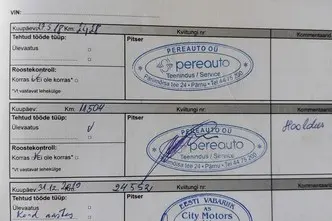 VIN:
Kuupäev: Km: 2428 Kviitungi nr: Kommentaarid
Tehtud tööde tüüp: Pitser
Ülevaatus
PEREAUTO OÜ
pereauto
Teenindus / Service
Pärnu • Tel 44 75 200
Roostekontroll:
Korras / ei ole korras*)
*) Vt vastavat leheküge
Kuupäev: Km: 11504 Kviitungi nr: Kommentaarid
Tehtud tööde tüüp: Pitser
Ülevaatus V Hooldus
PEREAUTO OÜ
pereauto
Teenindus / Service
Pärnu • Tel 44 75 200
Roostekontroll:
Korras / ei ole korras*)
*) Vt vastavat lehekülge
Kuupäev 31.12.2010 24552 Kviitungi nr: Kommentaarid
Tehtud tööde tüüp: Pitser
Ülevaatus
EESTI VABARIIK
City Motors